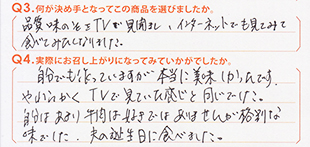 Q3.何が決め手となってこの商品を選びましたか。
品質 味のよさ TVで見聞きし、インターネットでも見てみて
食べてみたくなりました。
Q4.実際にお召し上がりになってみていかがでしたか。
自分でも作っていますが本当に美味しかったんです。
やわらかく TVで見ていた感じと同じでした。
自分はあまり牛肉は好きではありませんが格別な
味でした。夫の誕生日に食べました。